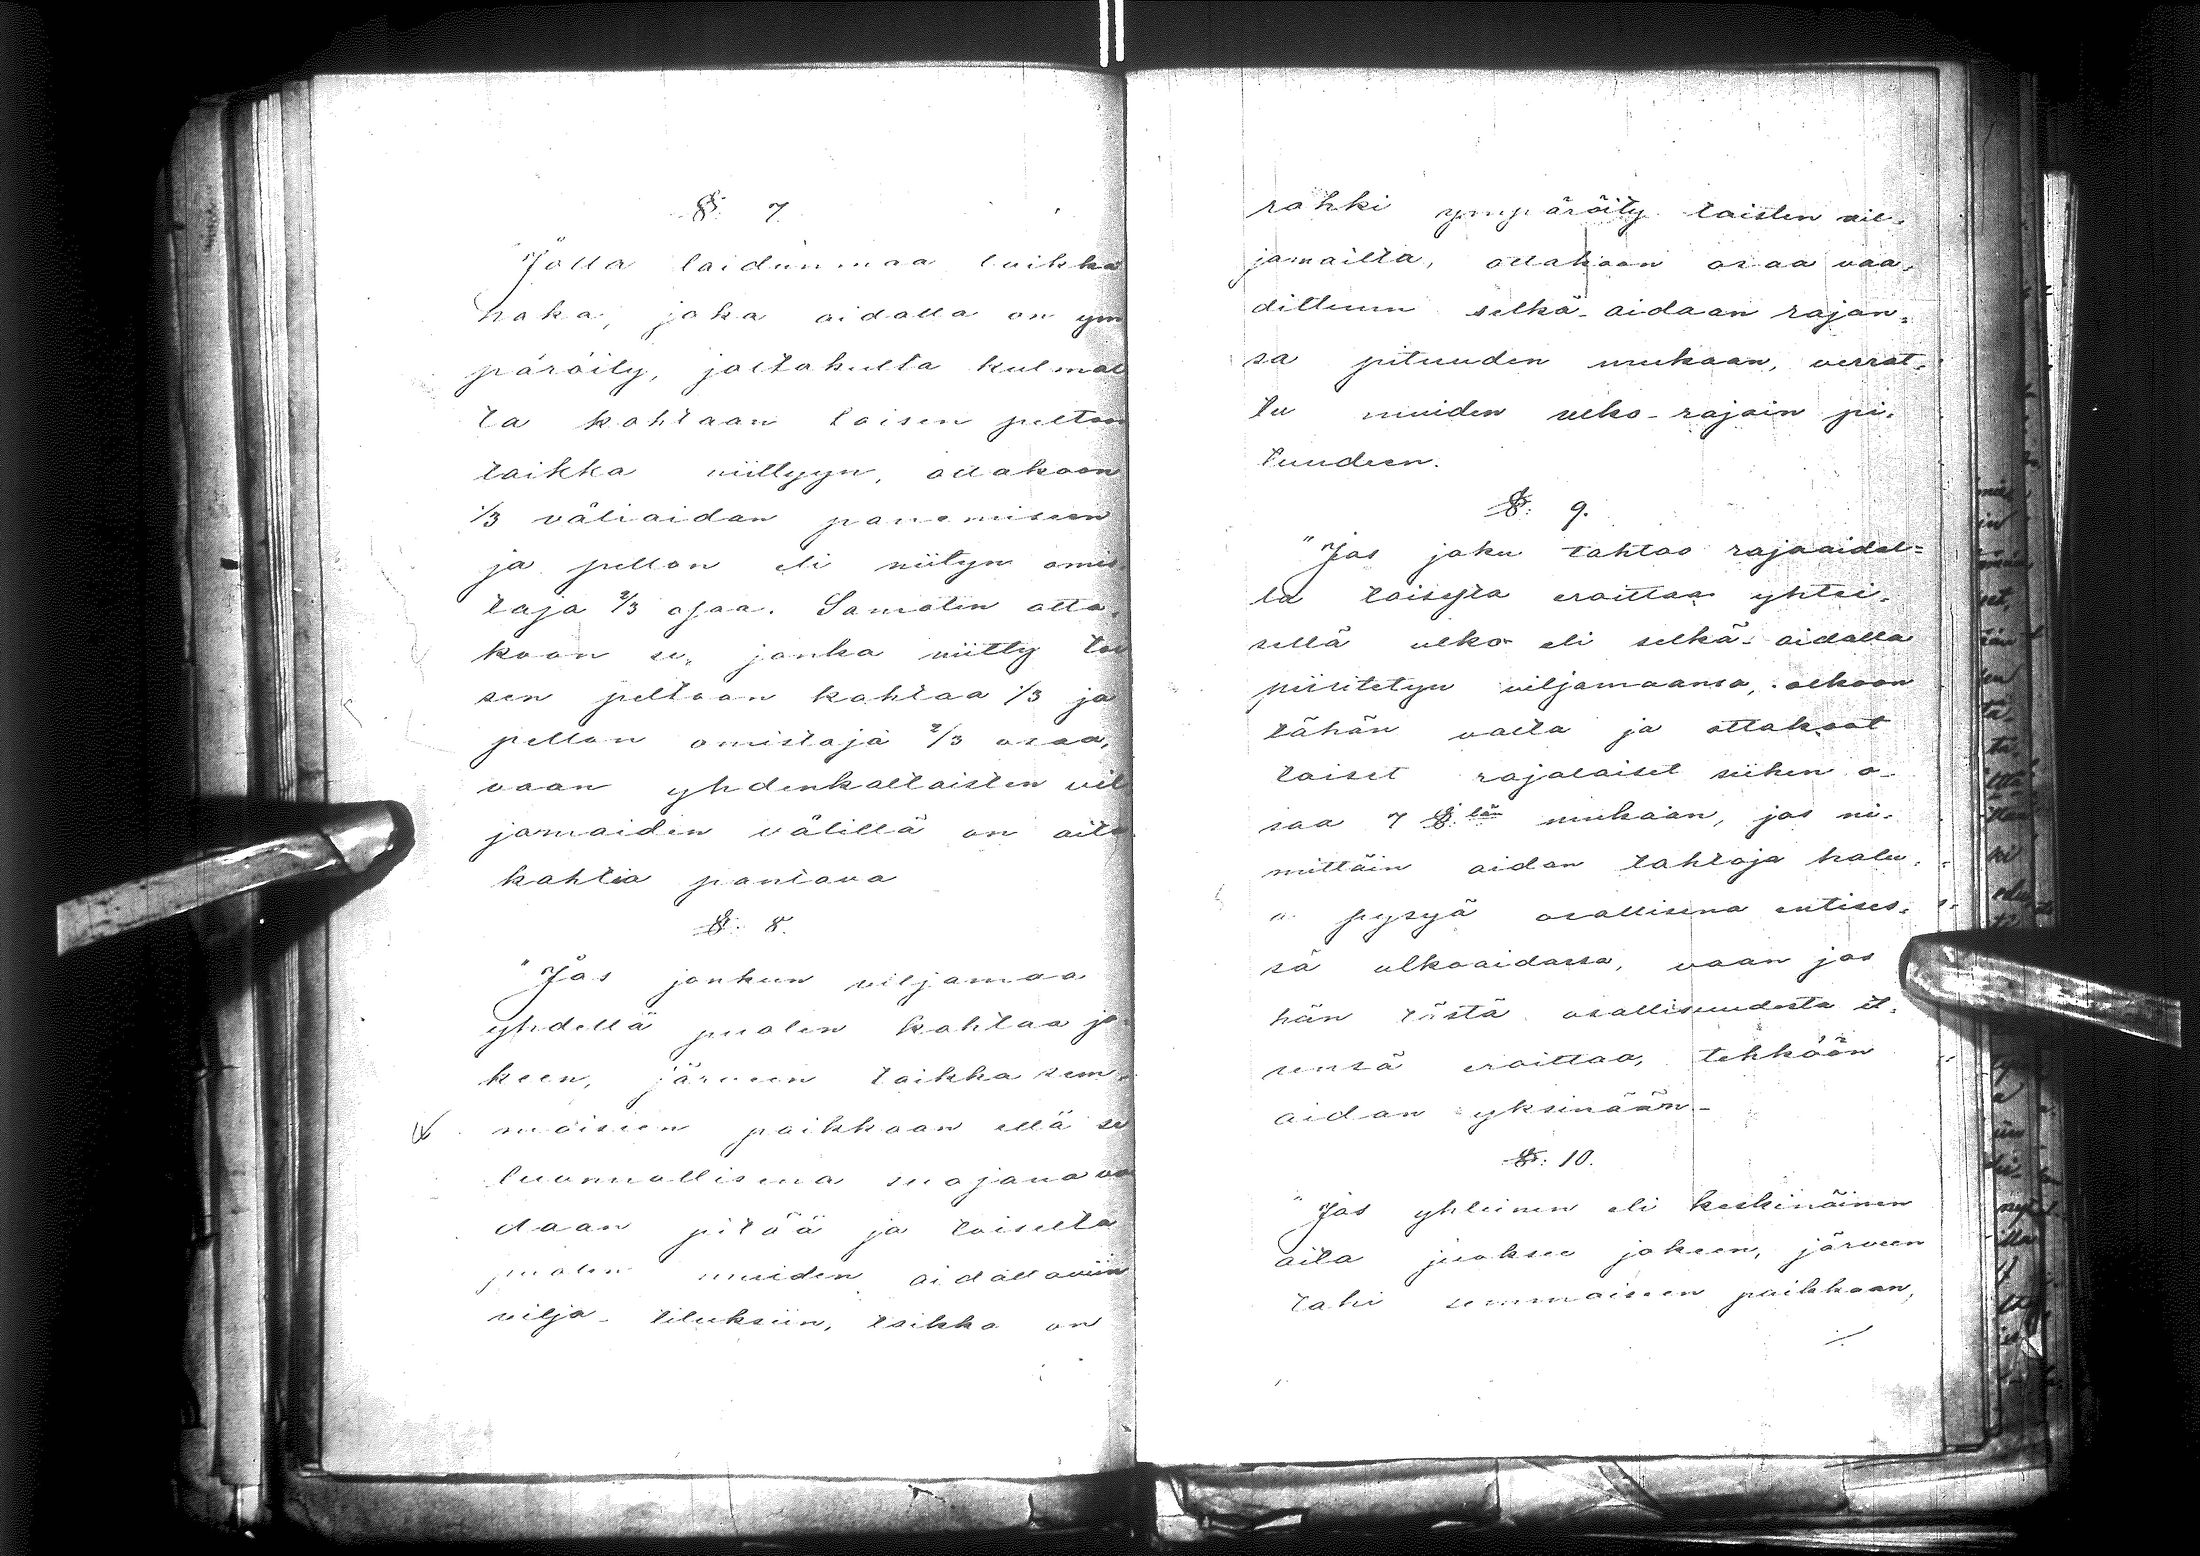 § 7
"Jolla laidunmaa taikka
haka, joka aidalla on ym
päröity, joltakulta kulmal
ta kohtaan toisen peltoon
taikka niittyyn, ottakoon
1/3 väliaidan panemiseen
ja pellon eli niityn omis
taja 2/3 osaa. Samoten otta,
koon se, jonka niitty toi
sen peltoon kohtaa 1/3 ja
pellon omistaja 2/3 osaa,
vaan yhdenkaltaisten vil
jamaiden välillä on aita
kahtia pantava
§. 8.
"Jos jonkun viljamaa
yhdellä puolen kohtaa jo-
keen, järveen taikka sem,
moiseen paikkaan että se
luonnollisena suojana voi
daan pitää ja toiselta
puolen muiden aidattaviin
vilja- tiluksiin, taikka on
rahki ympäröity toisten vil,
jamailta, ottakoon osaa vaa,
dittuun selkä-aidaan rajan,
sa pituuden mukaan, verrat,
tu muiden ulko-rajain pi,
tuudeen.
§. 9.
"Jos joku tahtoo rajaaidal=
la toisesta eroittaa yhtei,
sellä ulko- eli selkä-aidalla
piiritetyn viljamaansa, olkoon
tähän valta ja ottakoot
toiset rajalaiset siihen o-
saa 7 §:län mukaan, jos ni,
mittäin aidan tahtoja halu,
a pysyä osallisena entises,
sä ulkoaidassa, vaan jos
hän tästä osallisuudesta it,
sensä eroittaa, tehköön
aidan yksinään-
§. 10.
"Jos yhteinen eli keskinäinen
aita juoksee jokeen, järveen
tahi semmoiseen paikkaan,
./.